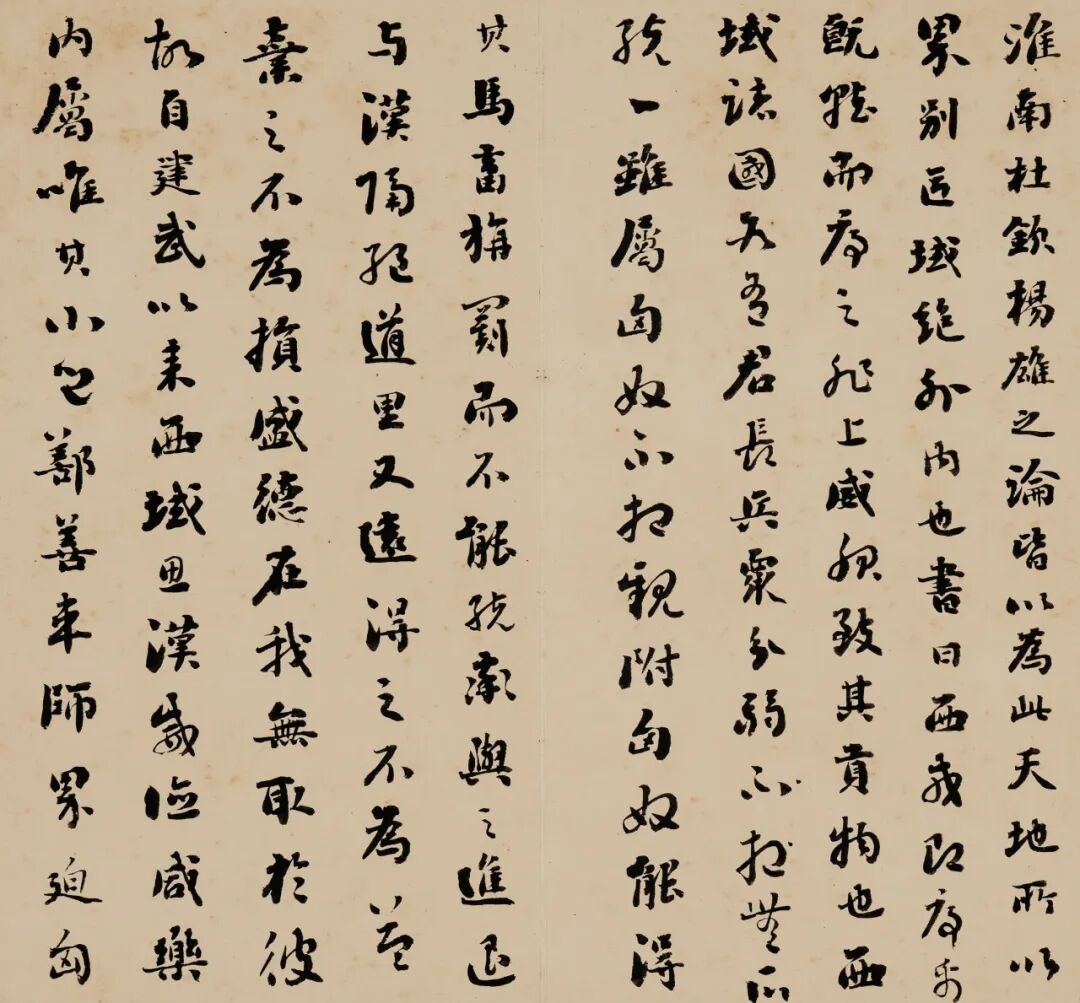 淮南杜欽楊雄之論皆以為此天地所以
界別區域絕外內也書曰西戎即序禹
既就而序之非上威服致其貢物也西
域諸國各有君長兵眾分弱不相無所
統一雖屬匈奴不相親附匈奴能得
其馬畜旃罽而不能統率與之進退
与漢隔絕道里又遠得之不為益
棄之不為損盛德在我無取於彼
故自建武以來西域思漢威德咸樂
內屬唯其小邑鄯善車師界迫匈